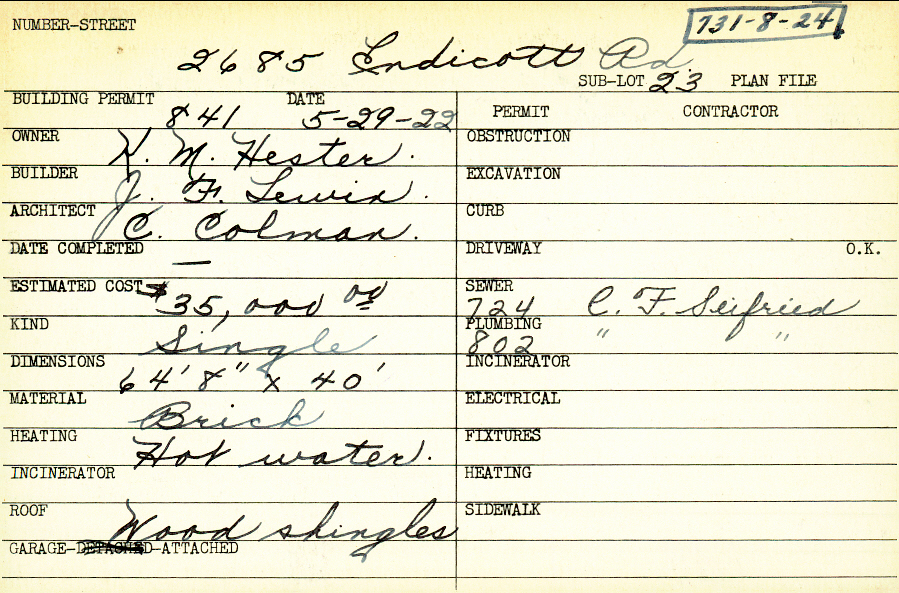 NUMBER-STREET 731-8-24
2685 Endicott Rd.
SUB-LOT 23 PLAN FILE
BUILDING PERMIT 841 DATE 5-29-22
OWNER H. M. Hester.
BUILDER J. F. Lewin.
ARCHITECT C. Colman.
DATE COMPLETED —
ESTIMATED COST $35,000 00
KIND Single
DIMENSIONS 64' 8" x 40'
MATERIAL Brick
HEATING Hot water.
INCINERATOR
ROOF Wood shingles
GARAGE-DETACHED-ATTACHED
PERMIT CONTRACTOR
OBSTRUCTION
EXCAVATION
CURB
DRIVEWAY O.K.
SEWER
724 C. F. Seifried
PLUMBING
802 " "
INCINERATOR
ELECTRICAL
FIXTURES
HEATING
SIDEWALK